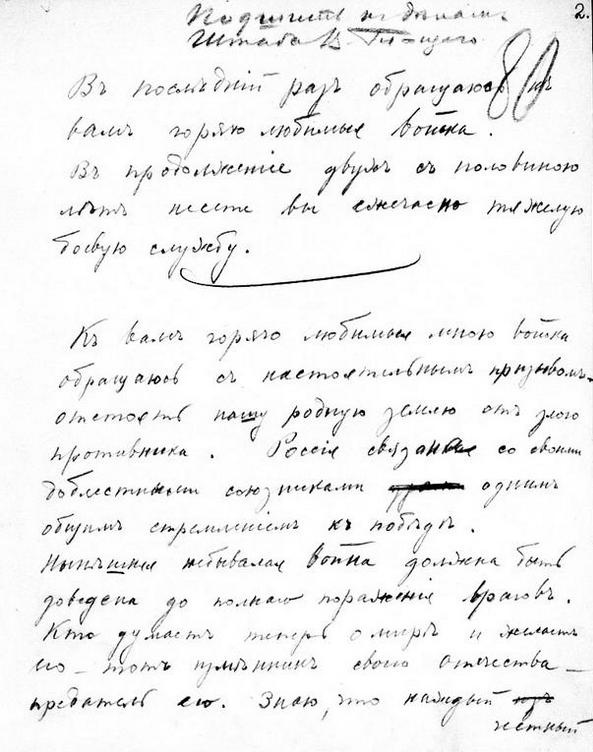 2.
Подшить къ дѣламъ
Штаба В. Г-щаго
80
Въ послѣдній разъ обращаюсь къ
вамъ горячо любимыя войска.
Въ продолженіе двухъ съ половиною
лѣтъ несете вы ежечасно тяжелую
боевую службу.
Къ вамъ горячо любимыя мною войска
обращаюсь съ настоятельнымъ призывомъ
отстоять нашу родную землю отъ злого
противника. Россія связана со своими
доблестными союзниками однимъ
общимъ стремленіемъ къ побѣдѣ.
Нынѣшняя небывалая война должна быть
доведена до полнаго пораженія враговъ.
Кто думаетъ теперь о мирѣ и желаетъ
его – тотъ измѣнникъ своего отечества –
предатель его. Знаю, что каждый
честный